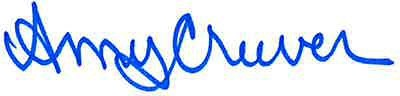 Amy Cruver